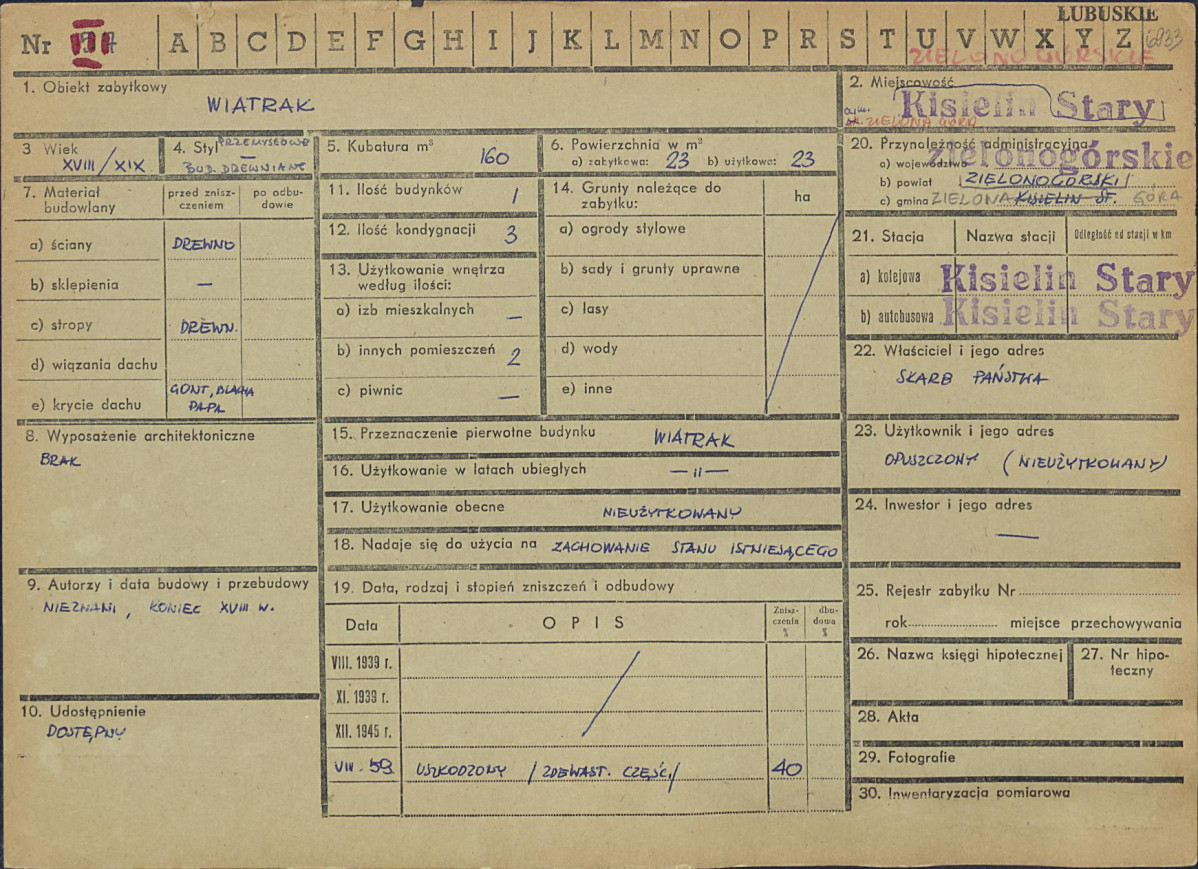 ŁUBUSKIE
Nr III A B C D E F G H I J K L M N O P R S T U V W X Y Z 6833
ZIELONOGÓRSKIE
1. Obiekt zabytkowy
WIATRAK
2. Miejscowość
Kisielin Stary
ZIELONA GÓRA
3 Wiek
XVIII/XIX
4. Styl PRZEMYSŁOWE
—
BUD. DREWNIANE
5. Kubatura m³ 160
6. Powierzchnia w m³
a) zabytkowa: 23 b) użytkowa: 23
7. Materiał budowlany
przed znisz-
czeniem
po odbu-
dowie
a) ściany DREWNO
b) sklepienia —
c) stropy DREWN.
d) wiązania dachu
e) krycie dachu GONT, BLACHA
PAPA
8. Wyposażenie architektoniczne
BRAK
9. Autorzy i data budowy i przebudowy
NIEZNANI, KONIEC XVIII W.
10. Udostępnienie
DOSTĘPNY
11. Ilość budynków 1
12. Ilość kondygnacji 3
13. Użytkowanie wnętrza
według ilości:
a) izb mieszkalnych —
b) innych pomieszczeń 2
c) piwnic —
14. Grunty należące do
zabytku:
ha
a) ogrody stylowe
b) sady i grunty uprawne
c) lasy
d) wody
e) inne
15. Przeznaczenie pierwotne budynku WIATRAK
16. Użytkowanie w latach ubiegłych — 〃 —
17. Użytkowanie obecne NIEUŻYTKOWANY
18. Nadaje się do użycia na ZACHOWANIE STANU ISTNIEJĄCEGO
19. Data, rodzaj i stopień zniszczeń i odbudowy
Data
OPIS
Znisz-
czenia
%
dbu-
dowa
%
VIII. 1939 r.
XI. 1939 r.
XII. 1945 r.
VIII. 59 USZKODZONY /ZDEWAST. CZĘŚC./ 40
20. Przynależność administracyjna
a) województwo zielonogórskie
b) powiat ZIELONOGÓRSKI
c) gmina ZIELONA KISIELIN ST. GÓRA
21. Stacja
Nazwa stacji
Odległość od stacji w km
a) kolejowa Kisielin Stary
b) autobusowa Kisielin Stary
22. Właściciel i jego adres
SKARB PAŃSTWA
23. Użytkownik i jego adres
OPUSZCZONY (NIEUŻYTKOWANY)
24. Inwestor i jego adres
—
25. Rejestr zabytku Nr
rok miejsce przechowywania
26. Nazwa księgi hipotecznej
27. Nr hipo-
teczny
28. Akta
29. Fotografie
30. Inwentaryzacja pomiarowa